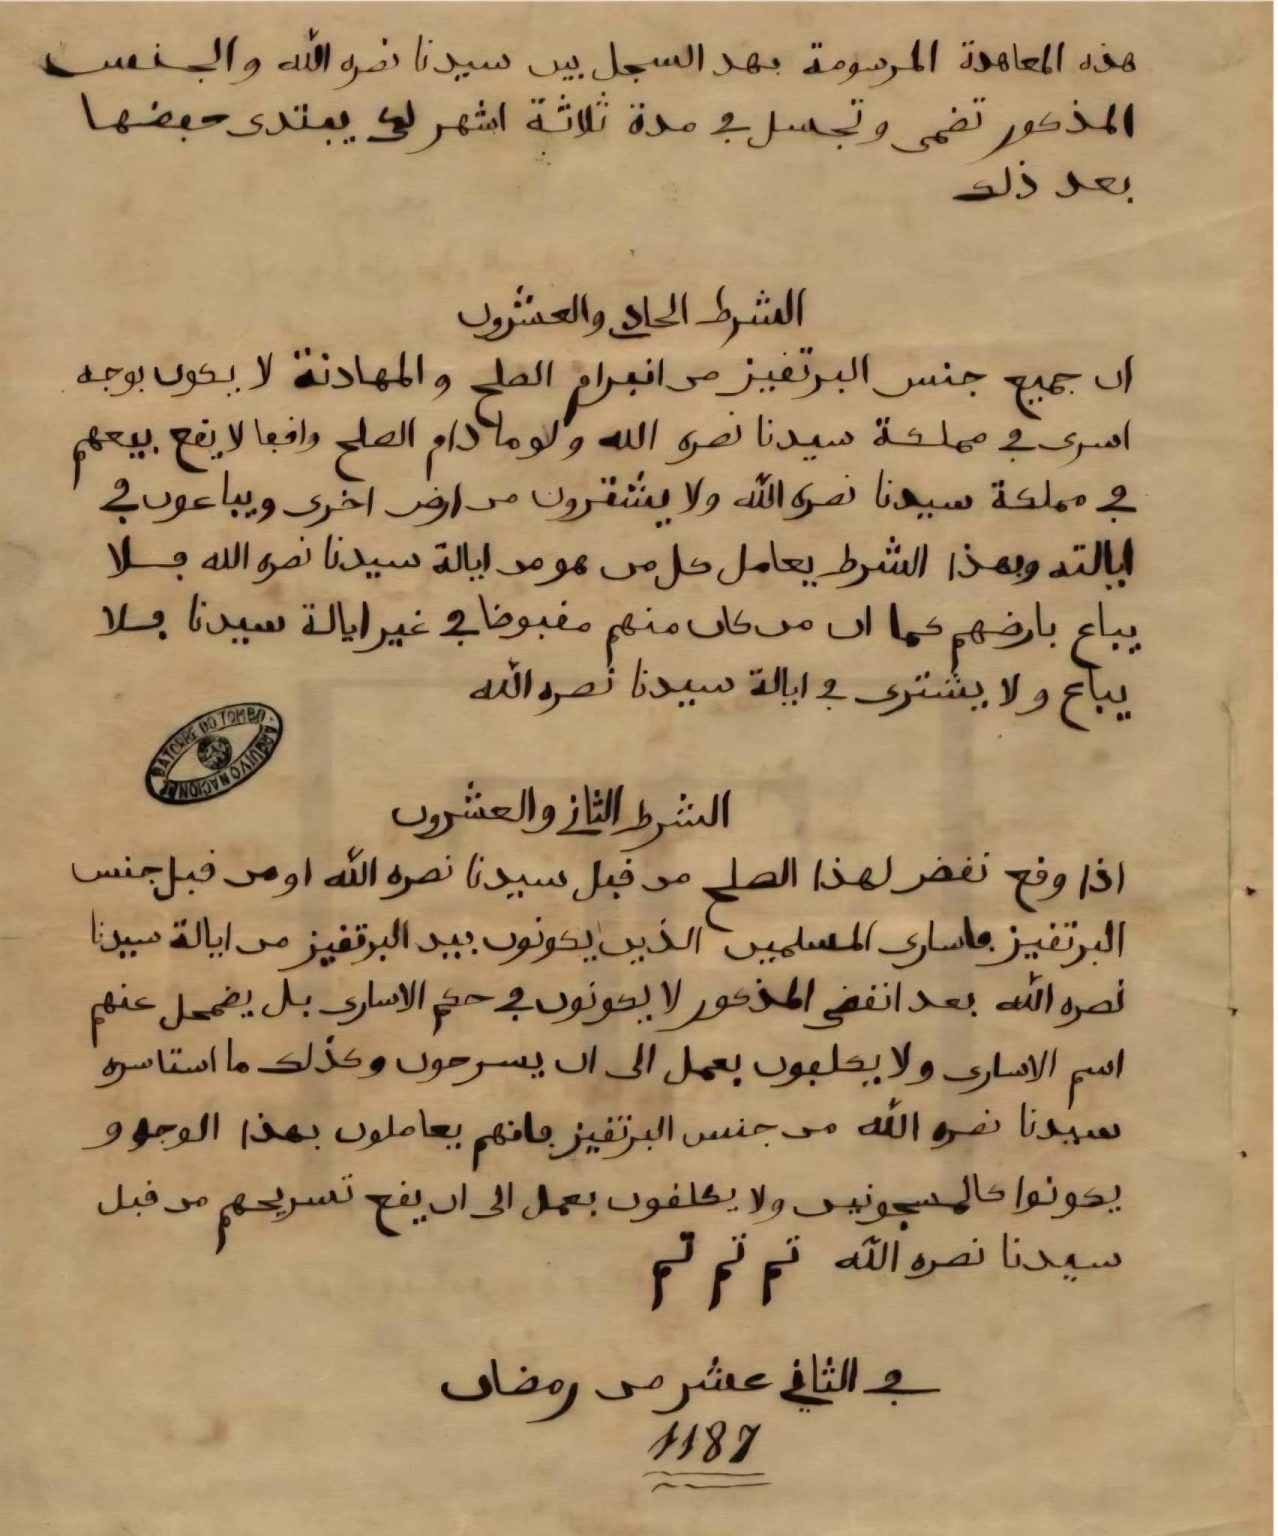 هذه المعاهدة المرسومة بهد السجل بين سيدنا نصره الله والجنس
المذكور تفضى وتجسل في مدة ثلاثة اشهر لكي يبتدى حفضها
بعد ذلك
الشرط الحادي والعشرون
ان جميع جنس البرتقيز من انبرام الصلح والمهادنة لا يكون بوجه
اسرى في مملكة سيدنا نصره الله ولو ما دام الصلح واقعا لا يقع بيعهم
في مملكة سيدنا نصره الله ولا يشترون من ارض اخرى ويباعون في
ايالته وبهذا الشرط يعامل كل من هو من ايالة سيدنا نصره الله فلا
يباع بارضهم كما ان من كان منهم مقبوضا في غير ايالة سيدنا فلا
يباع ولا يشترى في ايالة سيدنا نصره الله
BATORRE DO TOMBO · ARQUIVO NACIONAL
الشرط الثاني والعشرون
اذا وقع نقض لهذا الصلح من قبل سيدنا نصره الله او من قبل جنس
البرتقيز فاسارى المسلمين الذين يكونون بيد البرتقيز من ايالة سيدنا
نصره الله بعد انقضى المذكور لا يكونون في حكم الاسارى بل يضمحل عنهم
اسم الاسارى ولا يكلفون بعمل الى ان يسرحون وكذلك ما استاسره
سيدنا نصره الله من جنس البرتقيز فانهم يعاملون بهذا الوجه و
يكونوا كالمسجونين ولا يكلفون بعمل الى ان يقع تسريحهم من قبل
سيدنا نصره الله تم تم تم
في الثاني عشر من رمضان
1187